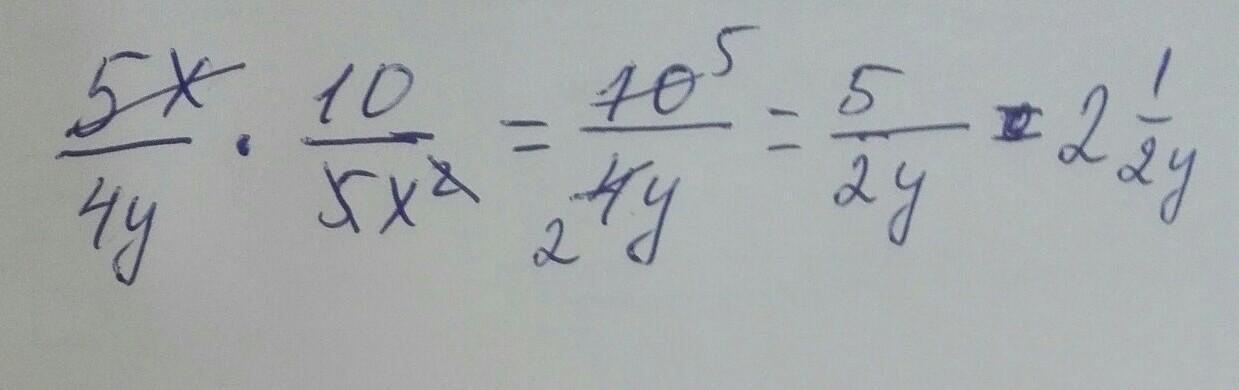 5x/4y · 10/5x² = 10 5/2 4y = 5/2y = 2 1/2y